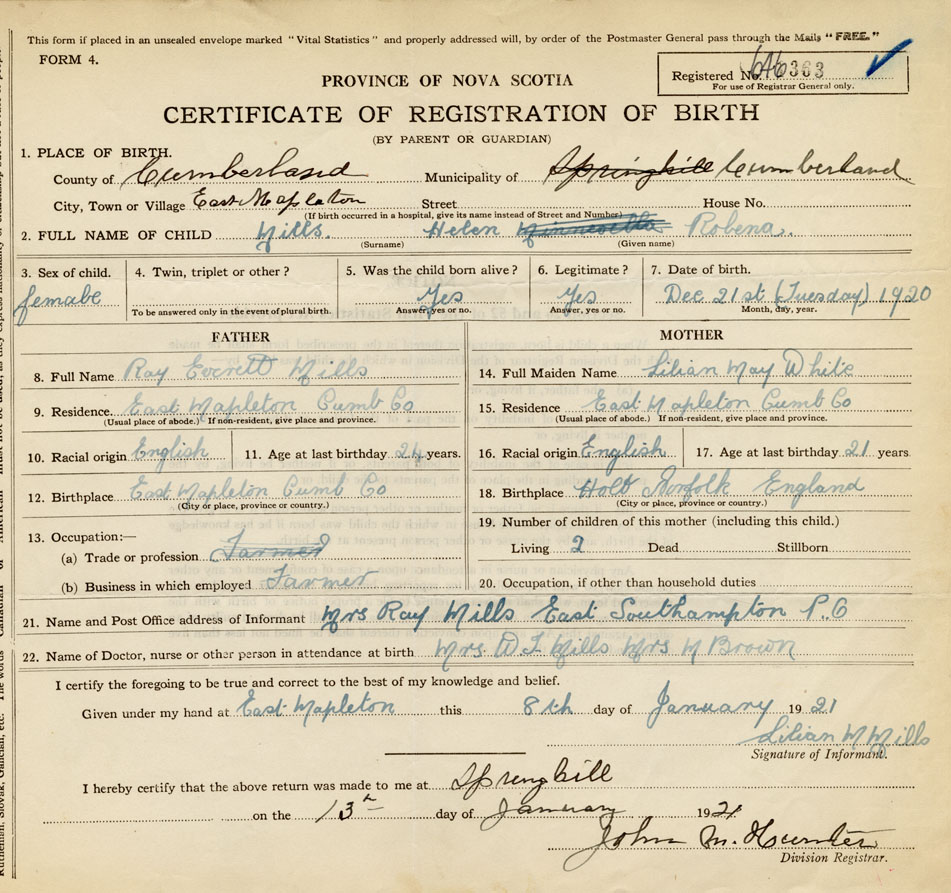 This form if placed in an unsealed envelope marked "Vital Statistics" and properly addressed will, by order of the Postmaster General pass through the Mails "FREE."
FORM 4.
Registered No. 363
For use of Registrar General only.
PROVINCE OF NOVA SCOTIA
CERTIFICATE OF REGISTRATION OF BIRTH
(BY PARENT OR GUARDIAN)
1. PLACE OF BIRTH.
County of Cumberland Municipality of Springhill Cumberland
City, Town or Village East Mapleton Street House No.
(If birth occurred in a hospital, give its name instead of Street and Number)
2. FULL NAME OF CHILD Mills. Helen Robena.
(Surname) (Given name)
3. Sex of child. 4. Twin, triplet or other? 5. Was the child born alive? 6. Legitimate? 7. Date of birth.
female Yes Yes Dec 21st (Tuesday) 1920
To be answered only in the event of plural birth. Answer, yes or no. Answer, yes or no. Month, day, year.
FATHER
8. Full Name Ray Everett Mills
9. Residence. East Mapleton Cumb Co
(Usual place of abode.) If non-resident, give place and province.
10. Racial origin English 11. Age at last birthday 24 years.
12. Birthplace East Mapleton Cumb Co
(City or place, province or country.)
13. Occupation:—
(a) Trade or profession Farmer
(b) Business in which employed Farmer
MOTHER
14. Full Maiden Name Lilian May White
15. Residence East Mapleton Cumb Co
(Usual place of abode.) If non-resident, give place and province.
16. Racial origin English 17. Age at last birthday 21 years
18. Birthplace Holt Norfolk England
(City or place, province or country.)
19. Number of children of this mother (including this child.)
Living 2 Dead Stillborn
20. Occupation, if other than household duties
21. Name and Post Office address of Informant Mrs Ray Mills East Southampton P.O
22. Name of Doctor, nurse or other person in attendance at birth Mrs. Mills Mrs M Brown
I certify the foregoing to be true and correct to the best of my knowledge and belief.
Given under my hand at East Mapleton this 8th day of January 1921
Lilian M Mills
Signature of Informant.
I hereby certify that the above return was made to me at Springhill
on the 13th day of January 1921
John M. Hunter
Division Registrar.